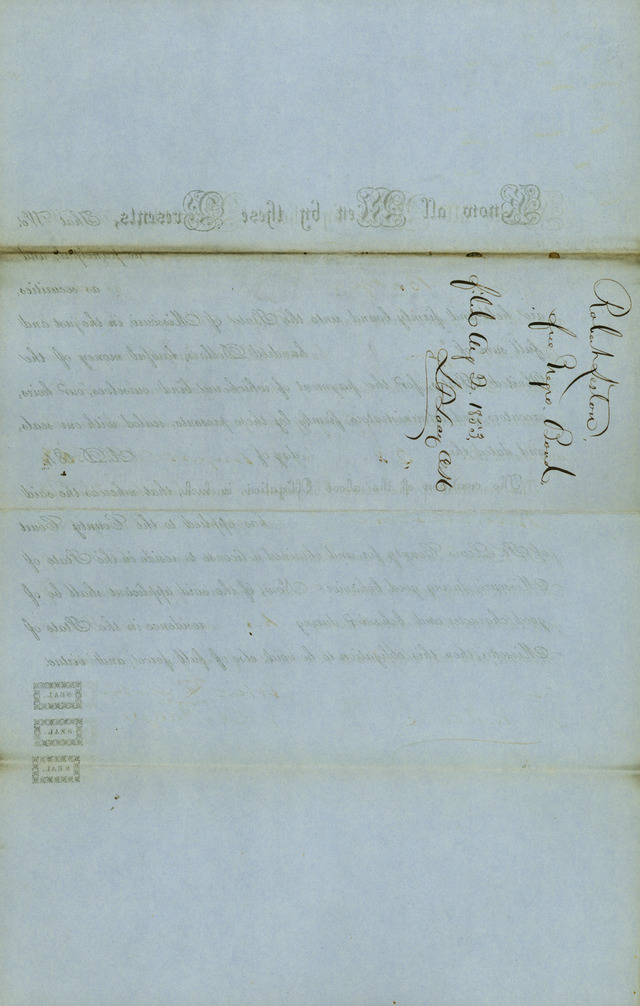 Robert
free Negro Bond
filed Aug 2, 1853
Know all Men by these Presents, That We,
and
as securities
are held and firmly bound unto the State of Missouri in the just and
full sum of hundred Dollars, lawful money of the
for the payment of which we bind ourselves, our heirs,
executors and administrators, firmly by these presents, sealed with our seals,
and dated this day of A.D. 185
The condition of the above Obligation is such, that whereas the said
has applied to the County Court
of St. Louis County for and obtained a license to reside in the State of
Missouri, during good behavior: Now, if the said applicant shall be of
good character and behavior during residence in the State of
Missouri, then this obligation to be void, else of full force and virtue.
SEAL
SEAL
SEAL